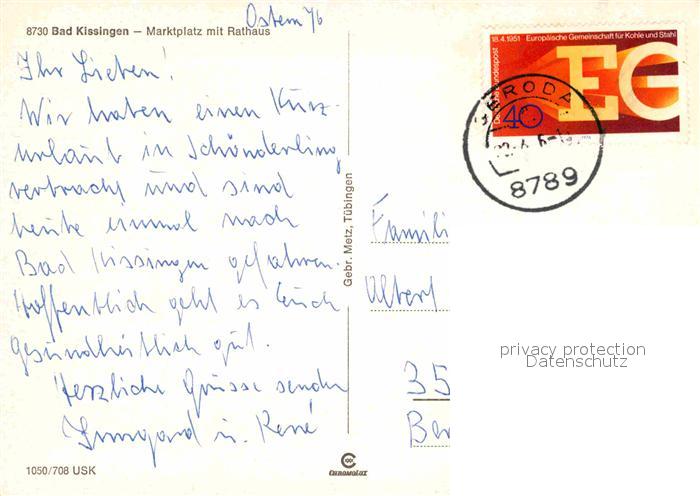 Ostern 76
8730 Bad Kissingen — Marktplatz mit Rathaus
Ihr Lieben!
Wir haben einen Kurz-
urlaub in Schönderling
verbracht und sind
heute einmal nach
Bad Kissingen gefahren.
Hoffentlich geht es Euch
gesundheitlich gut.
Herzliche Grüsse senden
Irmgard u. René
1050/708 USK
Gebr. Metz, Tübingen
CHROMOLUX
18.4.1951 Europäische Gemeinschaft für Kohle und Stahl
Deutsche Bundespost
EG
40
GERODA
8789
Famili
Albert
35
Ber
privacy protection
Datenschutz